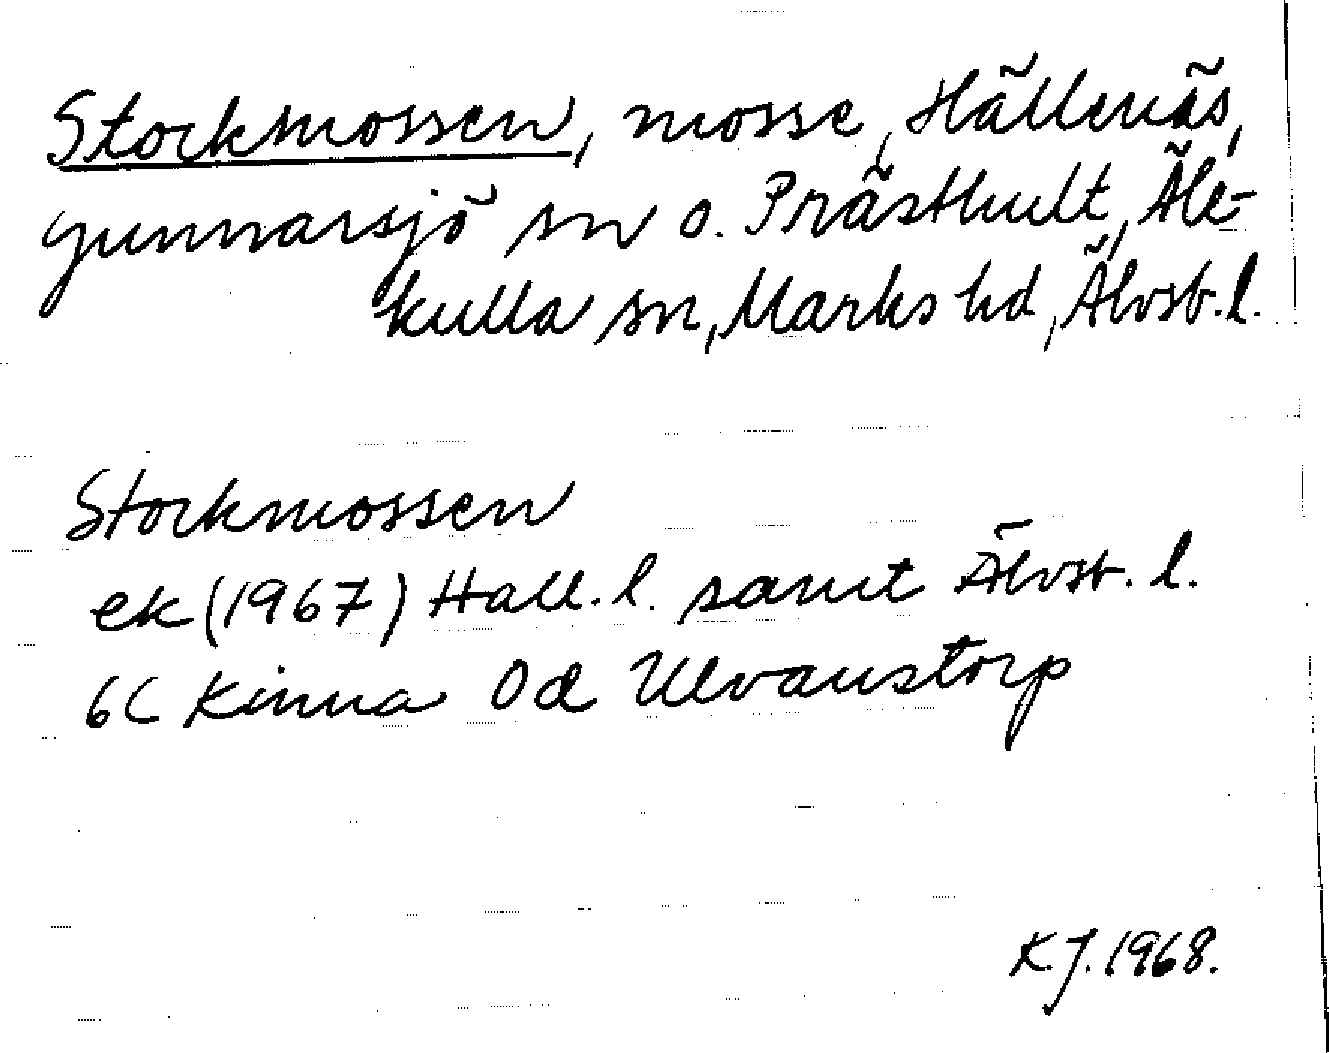 Stockmossen, mosse, Hällenäs,
Gunnarsjö sn o. Prästhult, Äle-
kulla sn, Marks hd, Älvsb. l.
Stockmossen
ek (1967) Hall. l. samt Älvsb. l.
6C Kinna 0d Ulvanstorp
K.J. 1968.